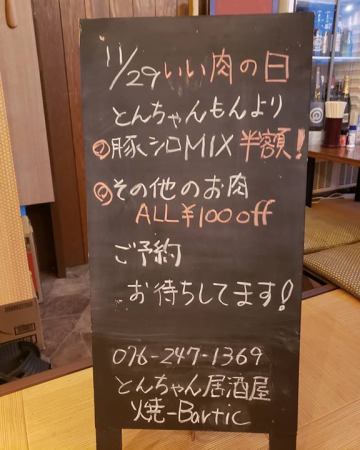 11/29いい肉の日
とんちゃんもんより
豚シロMIX 半額!
その他のお肉
ALL ¥100 off
ご予約
お待ちしてます!
076-247-1369
とんちゃん居酒屋
焼-Bartic